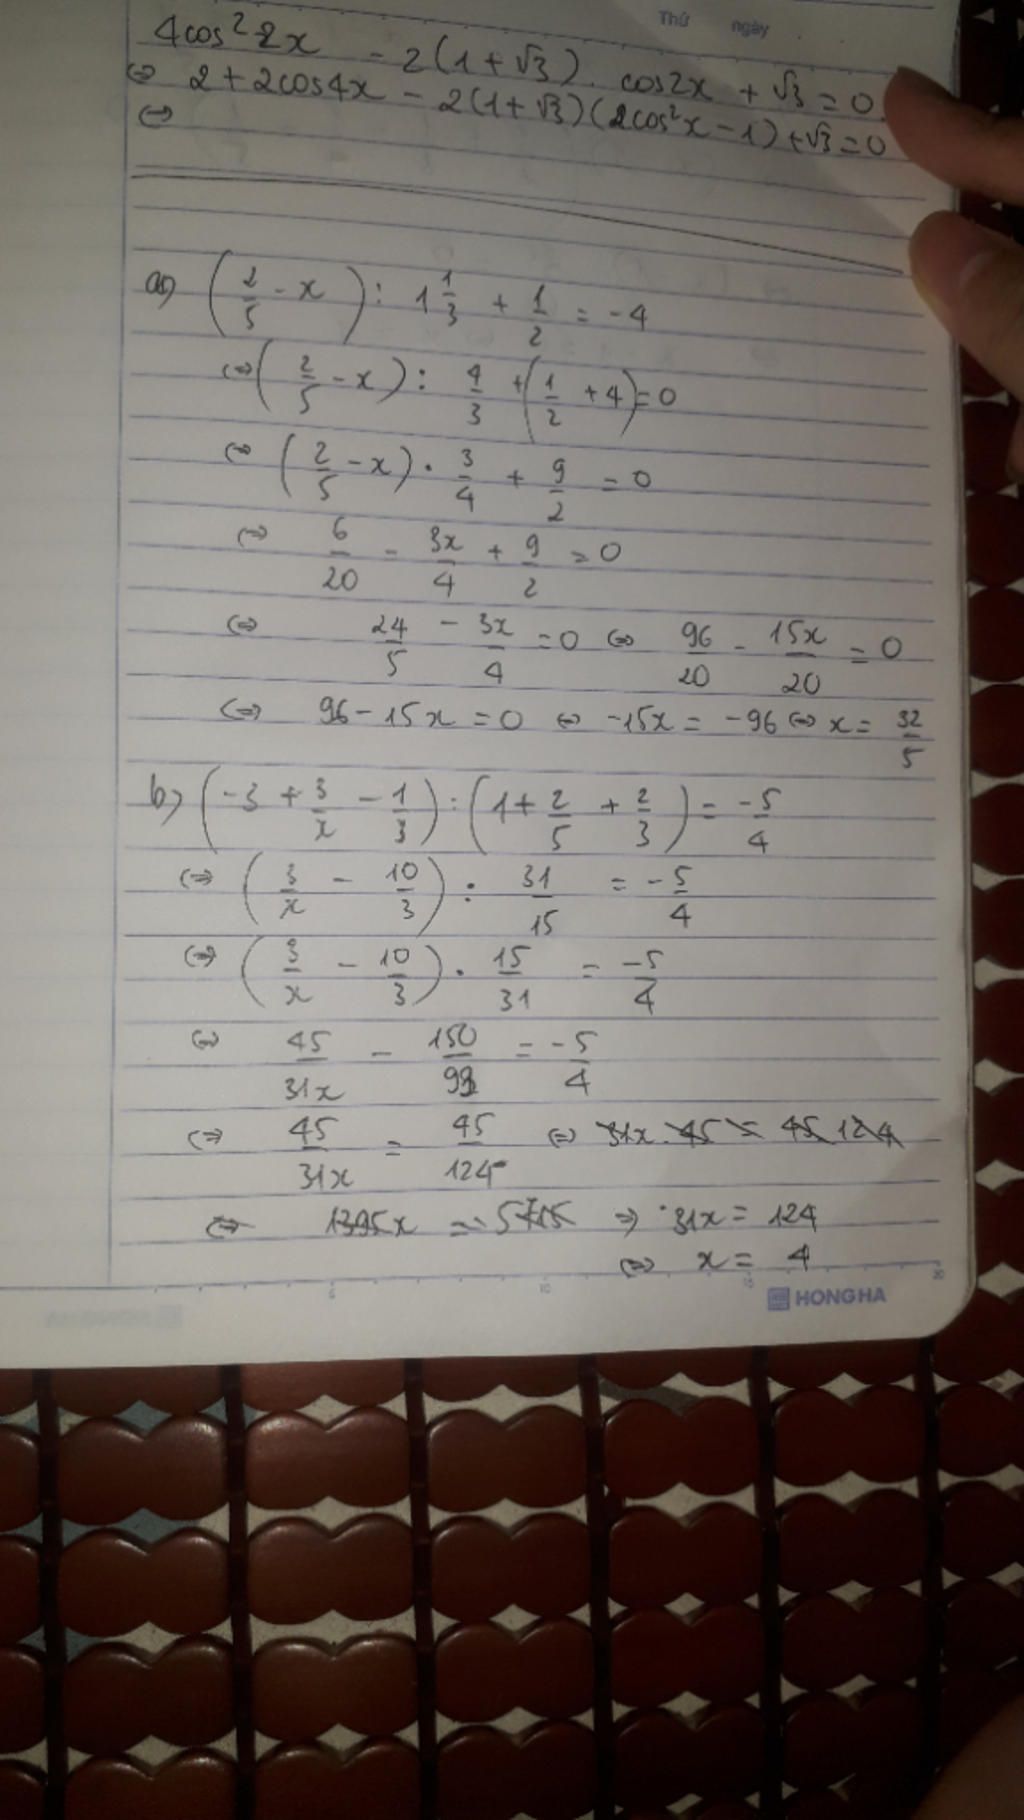 Thứ ngày
4cos² 2x - 2(1+√3). cos2x + √3 = 0
⇔ 2 + 2cos4x - 2(1+√3)(2cos²x - 1) + √3 = 0
⇔
a) (2/5 - x) : 1 1/3 + 1/2 = -4
⇔ (2/5 - x) : 4/3 + (1/2 + 4) = 0
⇔ (2/5 - x) . 3/4 + 9/2 = 0
⇔ 6/20 - 3x/4 + 9/2 = 0
⇔ 24/5 - 3x/4 = 0 ⇔ 96/20 - 15x/20 = 0
⇔ 96 - 15x = 0 ⇔ -15x = -96 ⇔ x = 32/5
b) (-3 + 3/x - 1/3) : (1 + 2/5 + 2/3) = -5/4
⇔ (3/x - 10/3) : 31/15 = -5/4
⇔ (3/x - 10/3) . 15/31 = -5/4
⇔ 45/31x - 150/93 = -5/4
⇔ 45/31x = 45/124 ⇔ 31x . 45 = 45 . 124
⇔ 1395x = ⇒ 31x = 124
⇔ x = 4
5 10 15 20
HONGHA